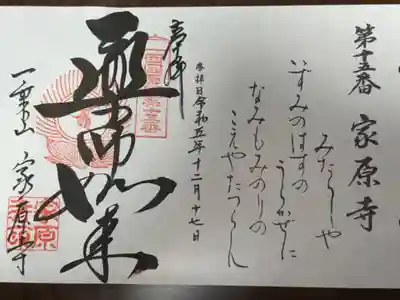 第十五番 家原寺
みたらしや
いずみのはすの
うらかぜに
なみもみのりの
こえやたつらん
参拝日令和五年十二月十七日
奉拝
薬師如来
一乗山 家原寺